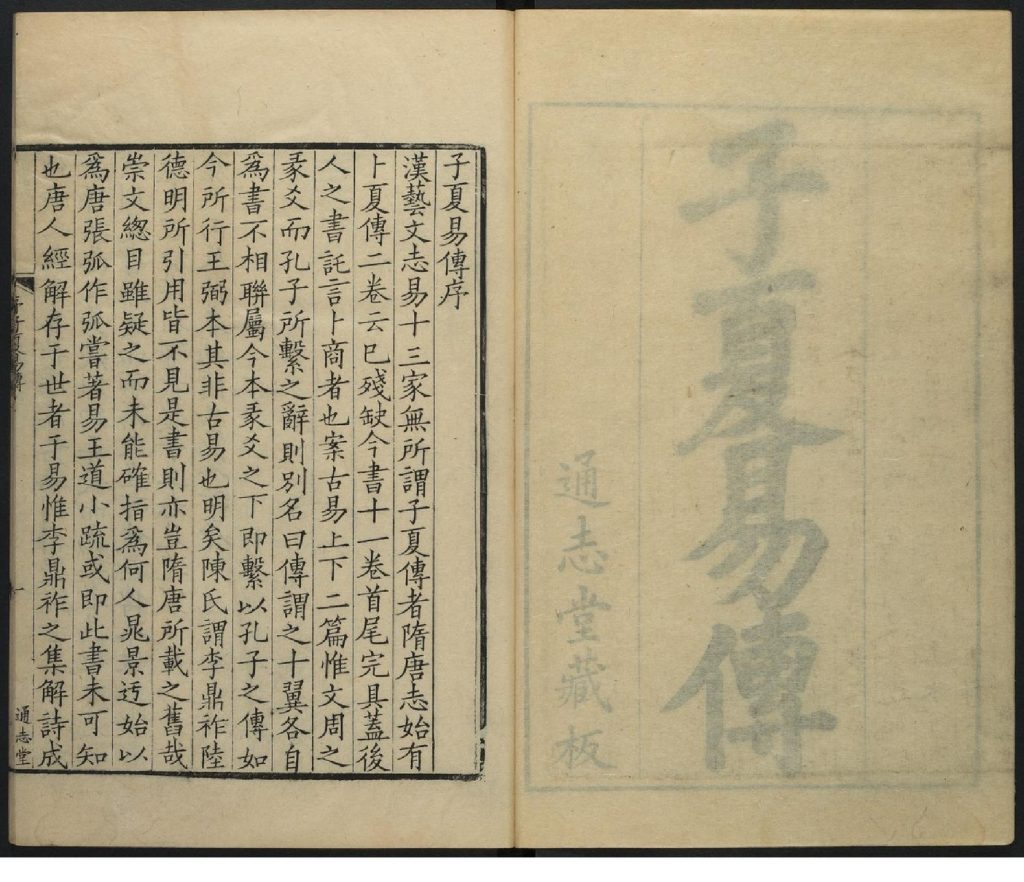 子夏易傳
通志堂藏板
子夏易傳序
漢藝文志易十三家無所謂子夏傳者隋唐志始有
卜夏傳二卷云已殘缺今書十一卷首尾完具蓋後
人之書託言卜商者也案古易上下二篇惟文周之
彖爻而孔子所繫之辭則別名曰傳謂之十翼各自
爲書不相聯屬今本彖爻之下即繫以孔子之傳如
今所行王弼本其非古易也明矣陳氏謂李鼎祚陸
德明所引用皆不見是書則亦豈隋唐所載之舊哉
崇文緫目雖疑之而未能確指爲何人晁景迃始以
爲唐張弧作弧嘗著易王道小疏或即此書未可知
也唐人經解存于世者于易惟李鼎祚之集解詩成
通志堂